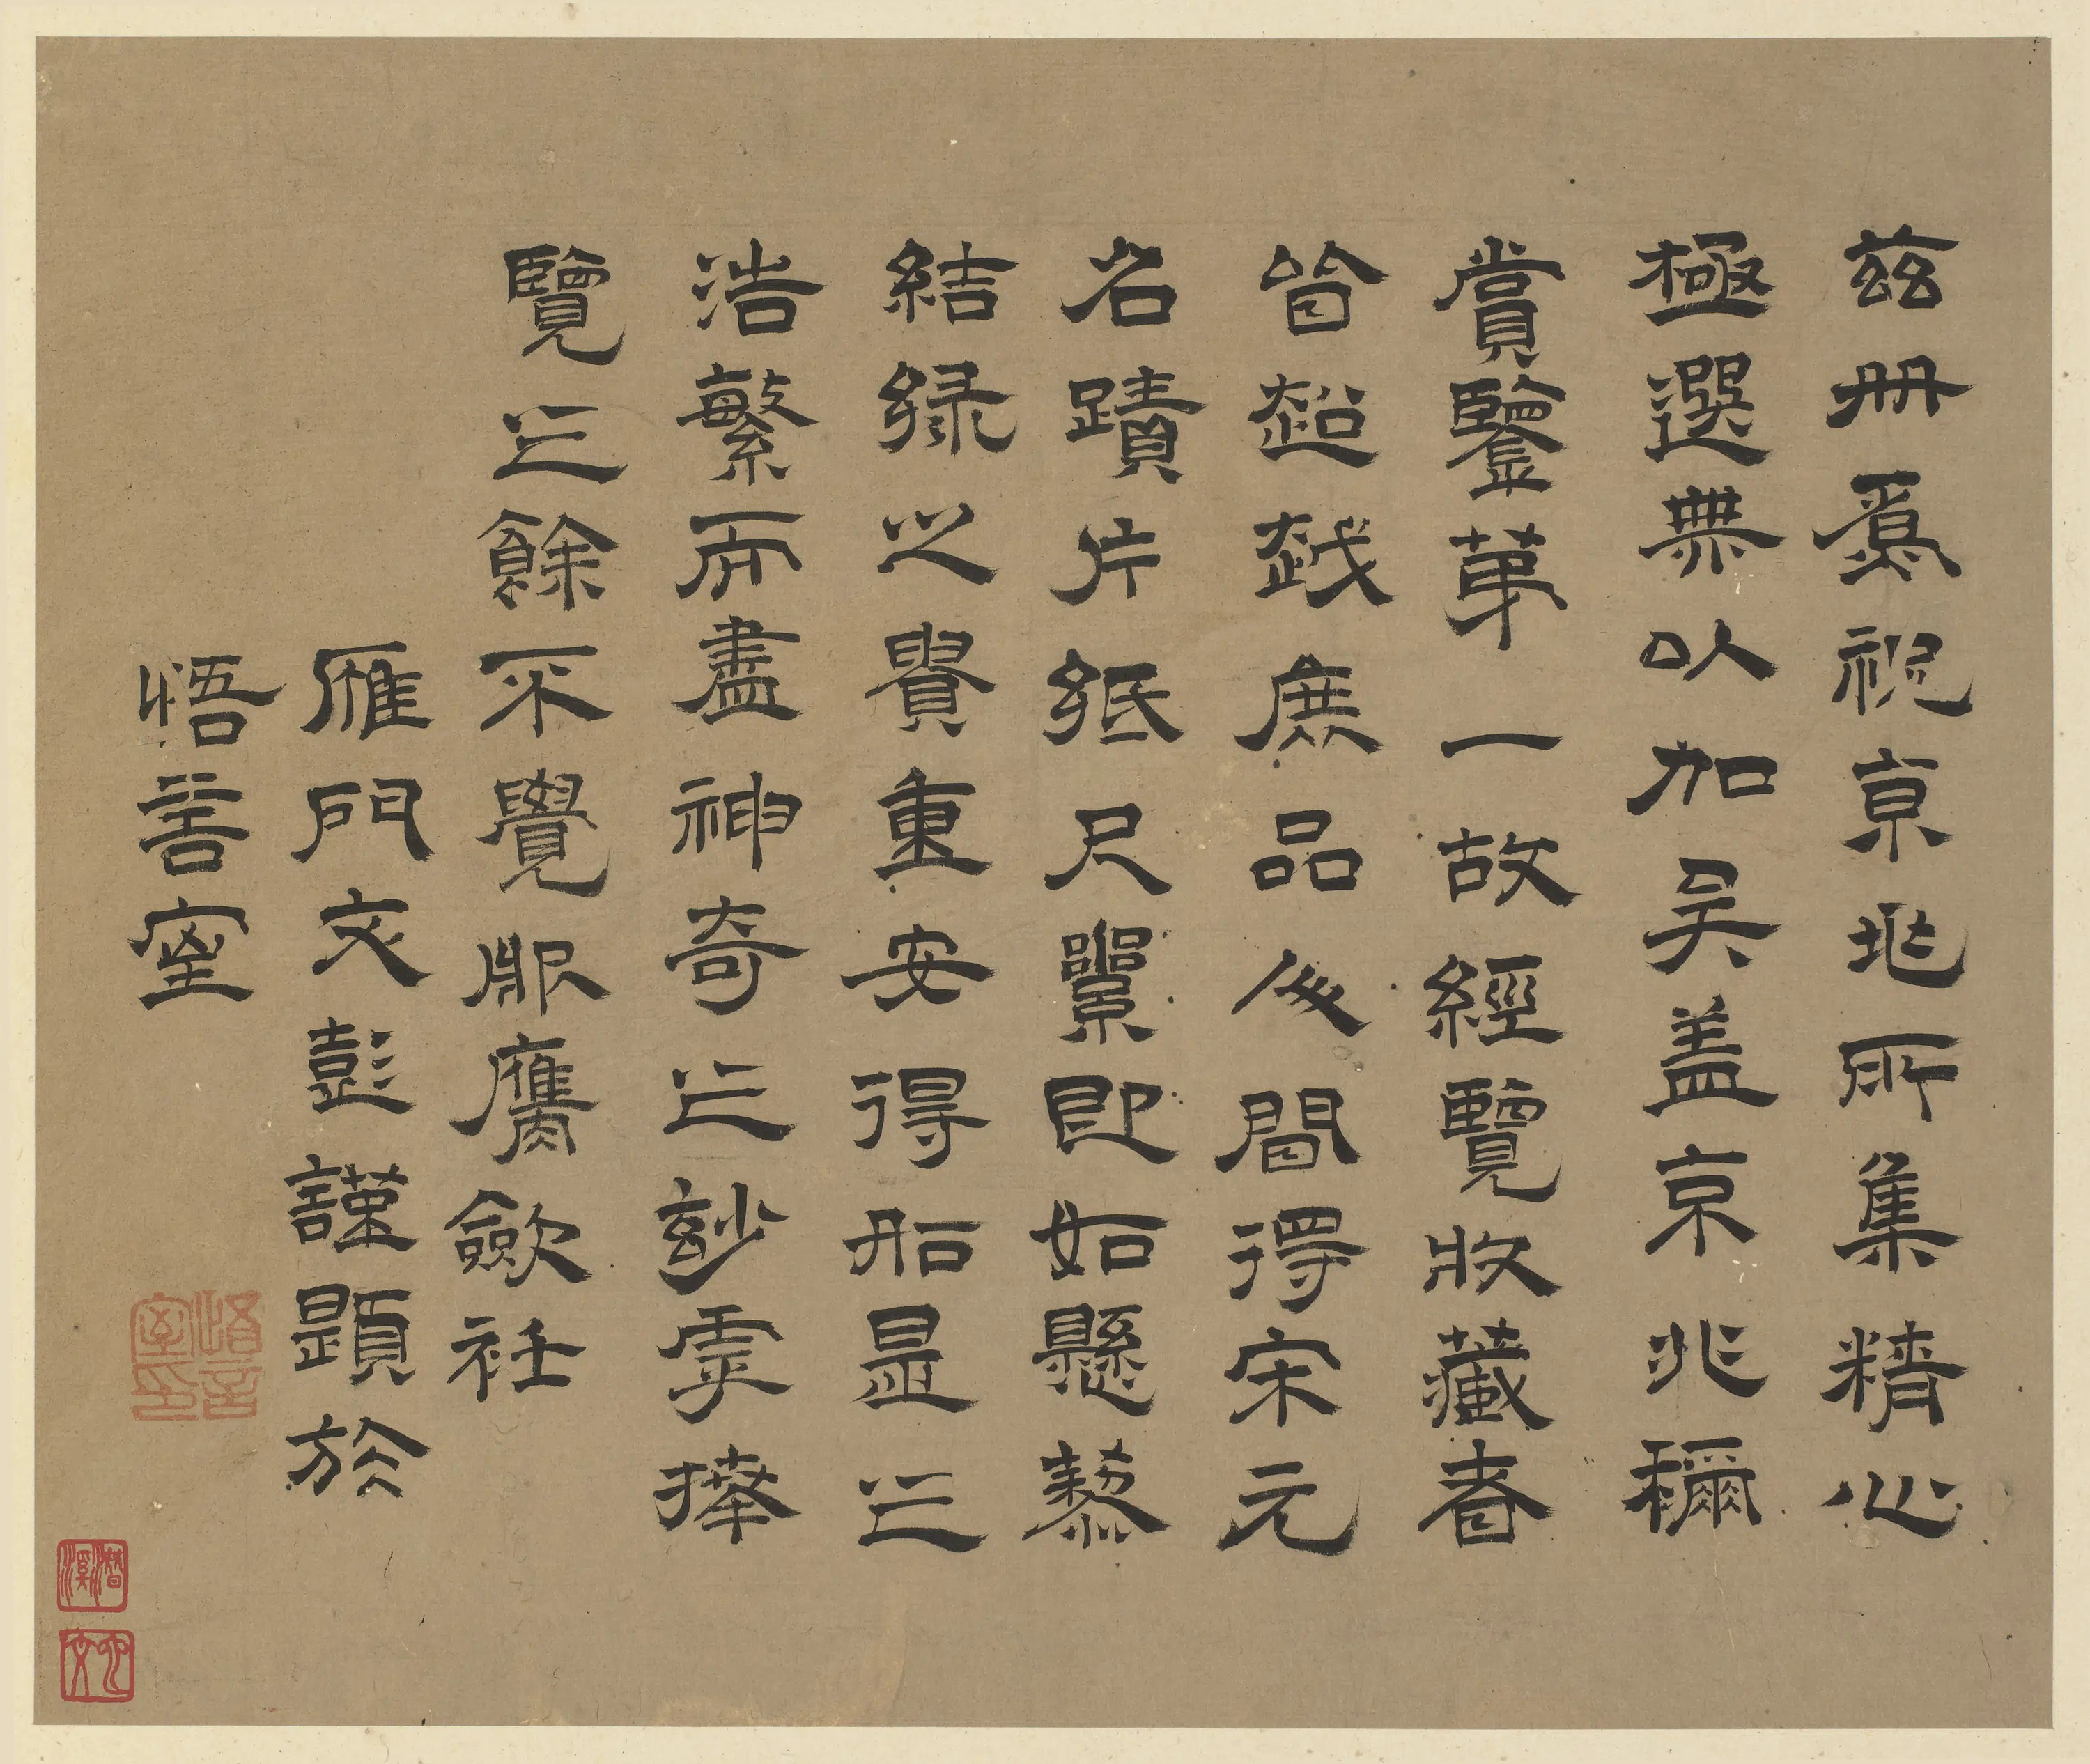 茲冊爲祝京兆所集精心
極選無以加矣蓋京兆稱
賞鑒第一故經覽收藏者
皆超越庶品後間得宋元
名蹟片紙尺素即如懸藜
結緑之貴重安得如是之
浩繁而盡神奇之妙虖捧
覽之餘不覺服膺斂衽
雁門文彭謹題於
悟言室
悟言室印
潛溪